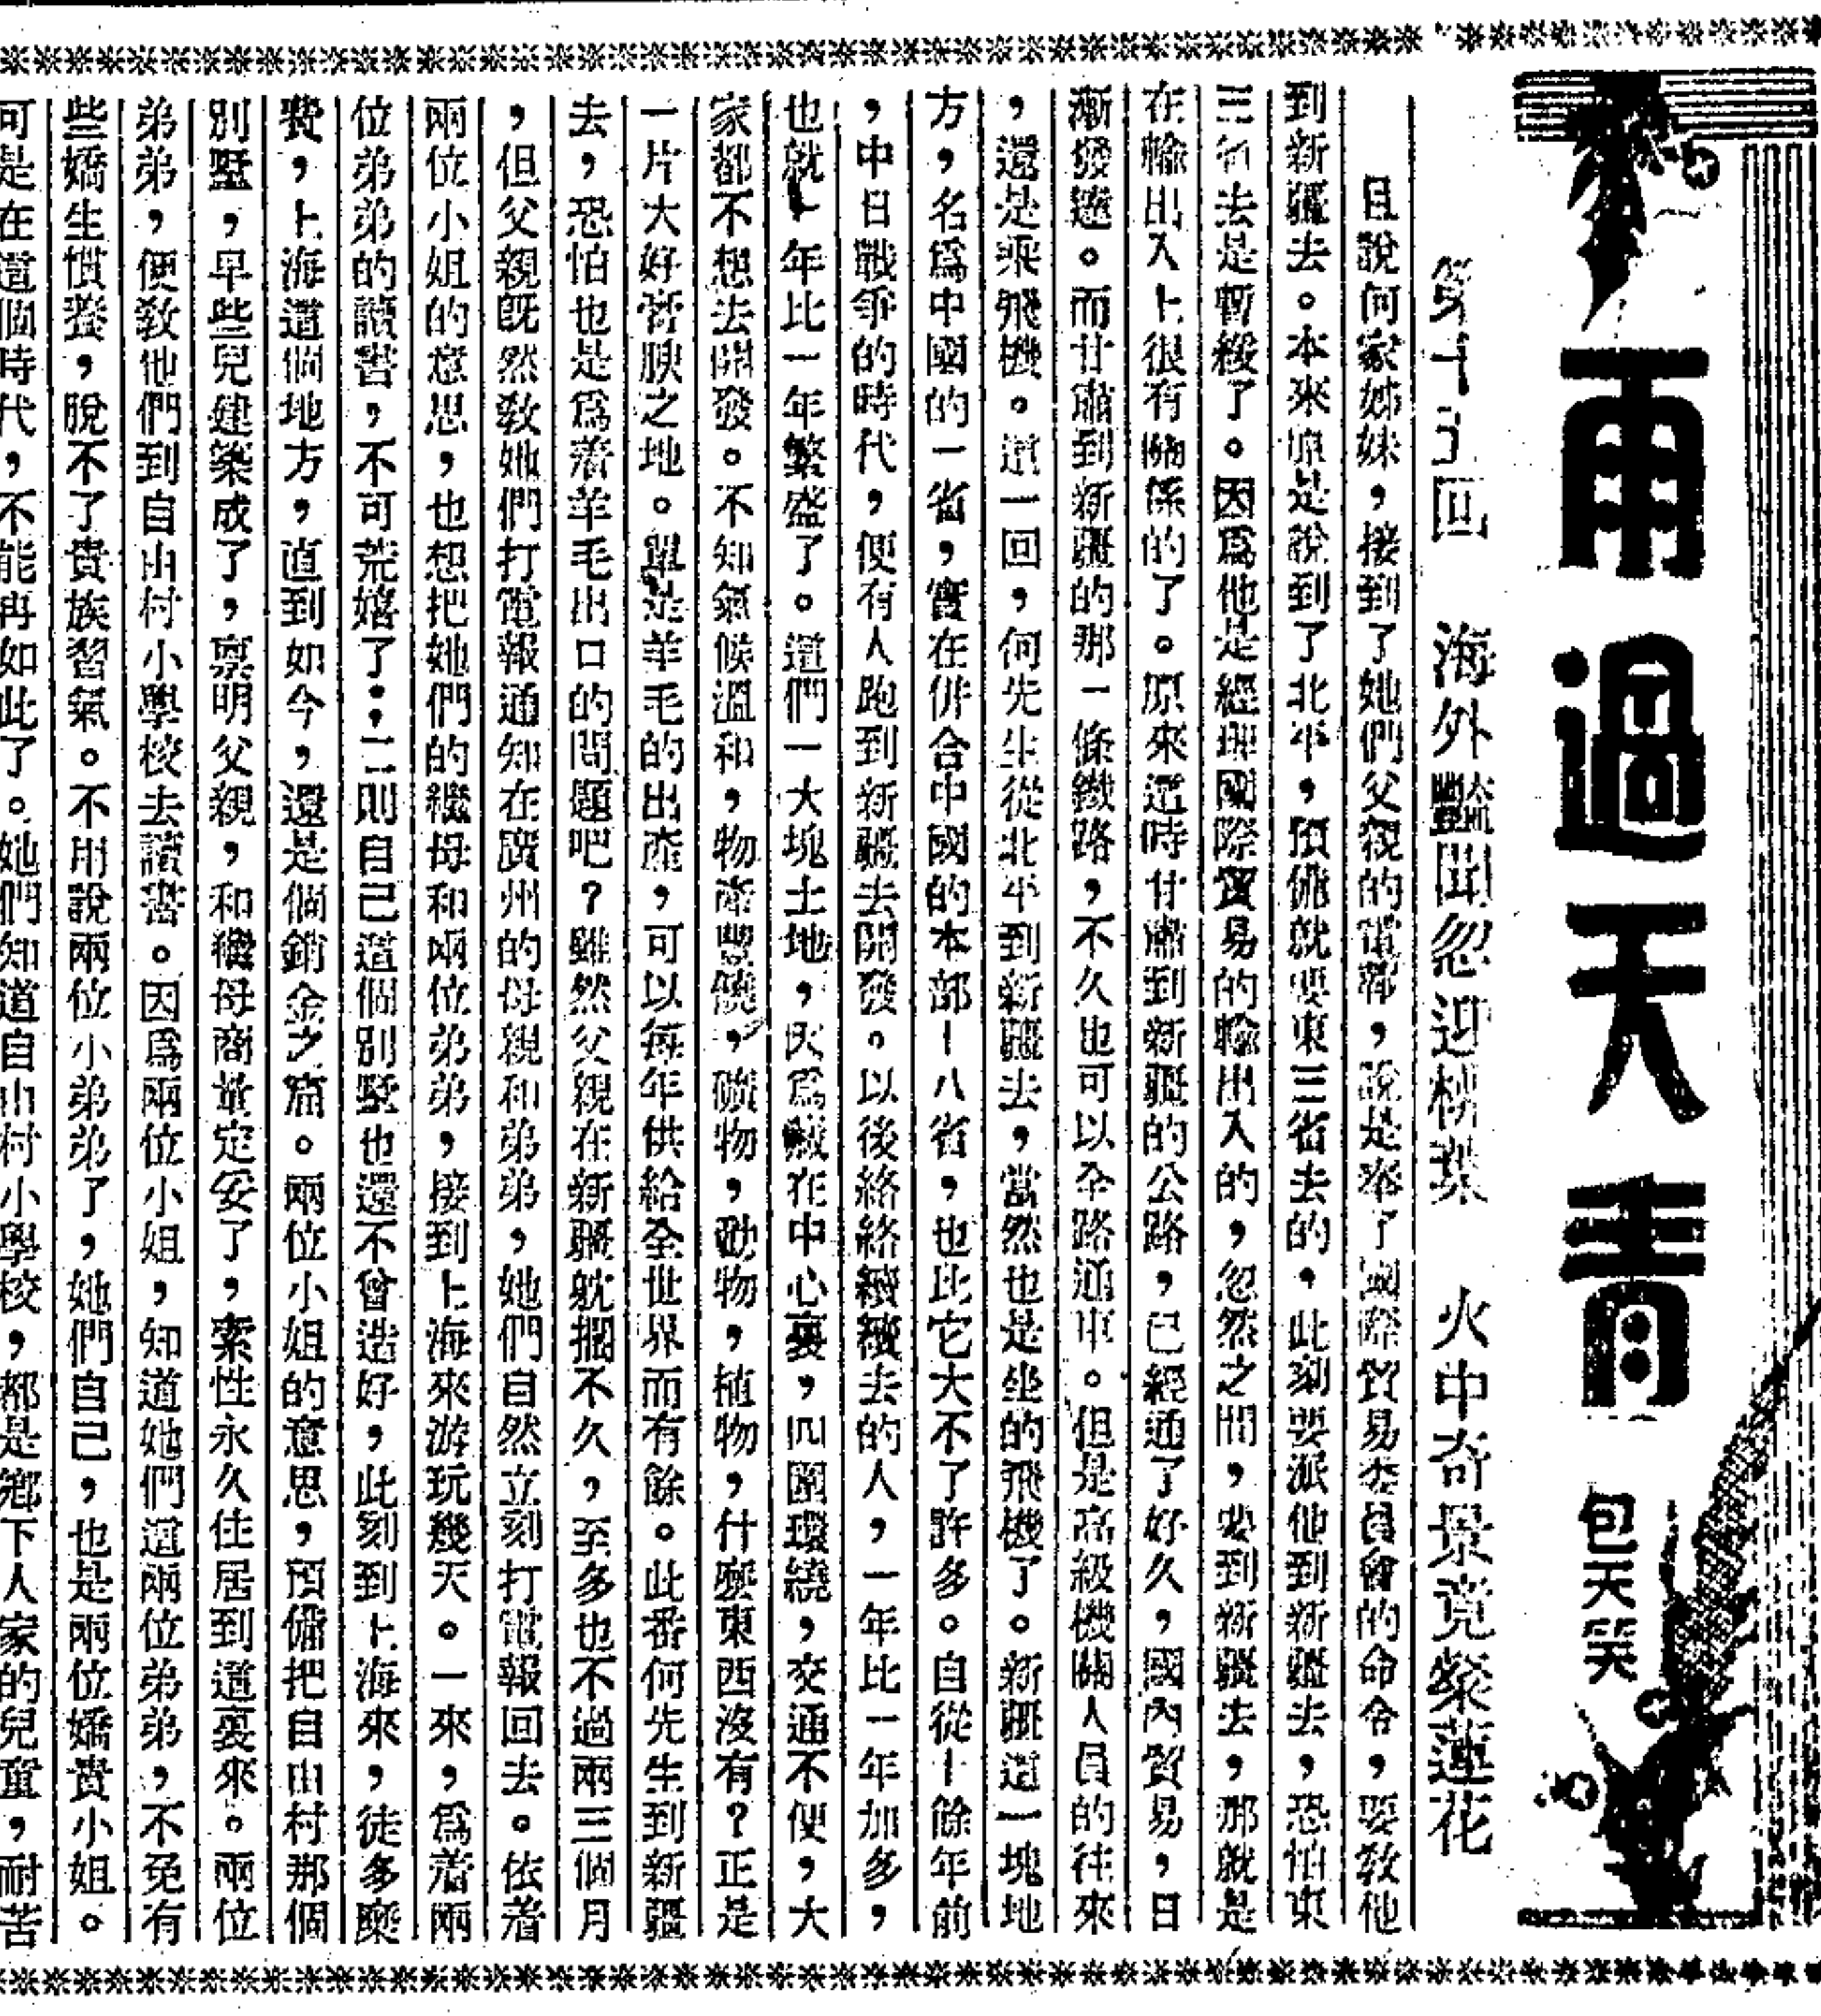 雨過天青
包天笑
第十五回 海外豔聞忽迎桃葉 火中奇景竟粲蓮花
且說何家姊妹，接到了她們父親的電報，說是奉了國際貿易委員會的命令，要敎他
到新疆去。本來原是說到了北平，預備就要東三省去的，此刻要派他到新疆去，恐怕東
三省去是暫緩了。因爲他是經理國際貿易的輸出入的，忽然之間，要到新疆去，那就是
在輸出入上很有關係的了。原來這時甘肅到新疆的公路，已經通了好久，國內貿易，日
漸發達。而甘肅到新疆的那一條鐵路，不久也可以全路通車。但是高級機關人員的往來
，還是乘飛機。這一回，何先生從北平到新疆去，當然也是坐的飛機了。新疆這一塊地
方，名爲中國的一省，實在併合中國的本部十八省，也比它大不了許多。自從十餘年前
，中日戰爭的時代，便有人跑到新疆去開發。以後絡絡續續去的人，一年比一年加多，
也就一年比一年繁盛了。這們一大塊土地，因爲藏在中心裏，四圍環繞，交通不便，大
家都不想去開發。不知氣候溫和，物產豐饒，礦物，動物，植物，什麼東西沒有？正是
一片大好膏腴之地。單是羊毛的出產，可以每年供給全世界而有餘。此番何先生到新疆
去，恐怕也是爲着羊毛出口的問題吧？雖然父親在新疆就擱不久，至多也不過兩三個月
，但父親旣然敎她們打電報通知在廣州的母親和弟弟，她們自然立刻打電報回去。依着
兩位小姐的意思，也想把她們的繼母和兩位弟弟，接到上海來游玩幾天。一來，爲着兩
位弟弟的讀書，不可荒嬉了；二則自己這個別墅也還不曾造好，此刻到上海來，徒多糜
費，上海這個地方，直到如今，還是個銷金之窟。兩位小姐的意思，預備把自由村那個
別墅，早些兒建築成了，禀明父親，和繼母商量定妥了，索性永久住居到這裏來。兩位
弟弟，便敎他們到自由村小學校去讀書。因爲兩位小姐，知道她們這兩位弟弟，不免有
些嬌生慣養，脫不了貴族習氣。不用說兩位小弟弟了，她們自己，也是兩位嬌貴小姐。
可是在這個時代，不能再如此了。她們知道自由村小學校，都是鄉下人家的兒童，耐苦